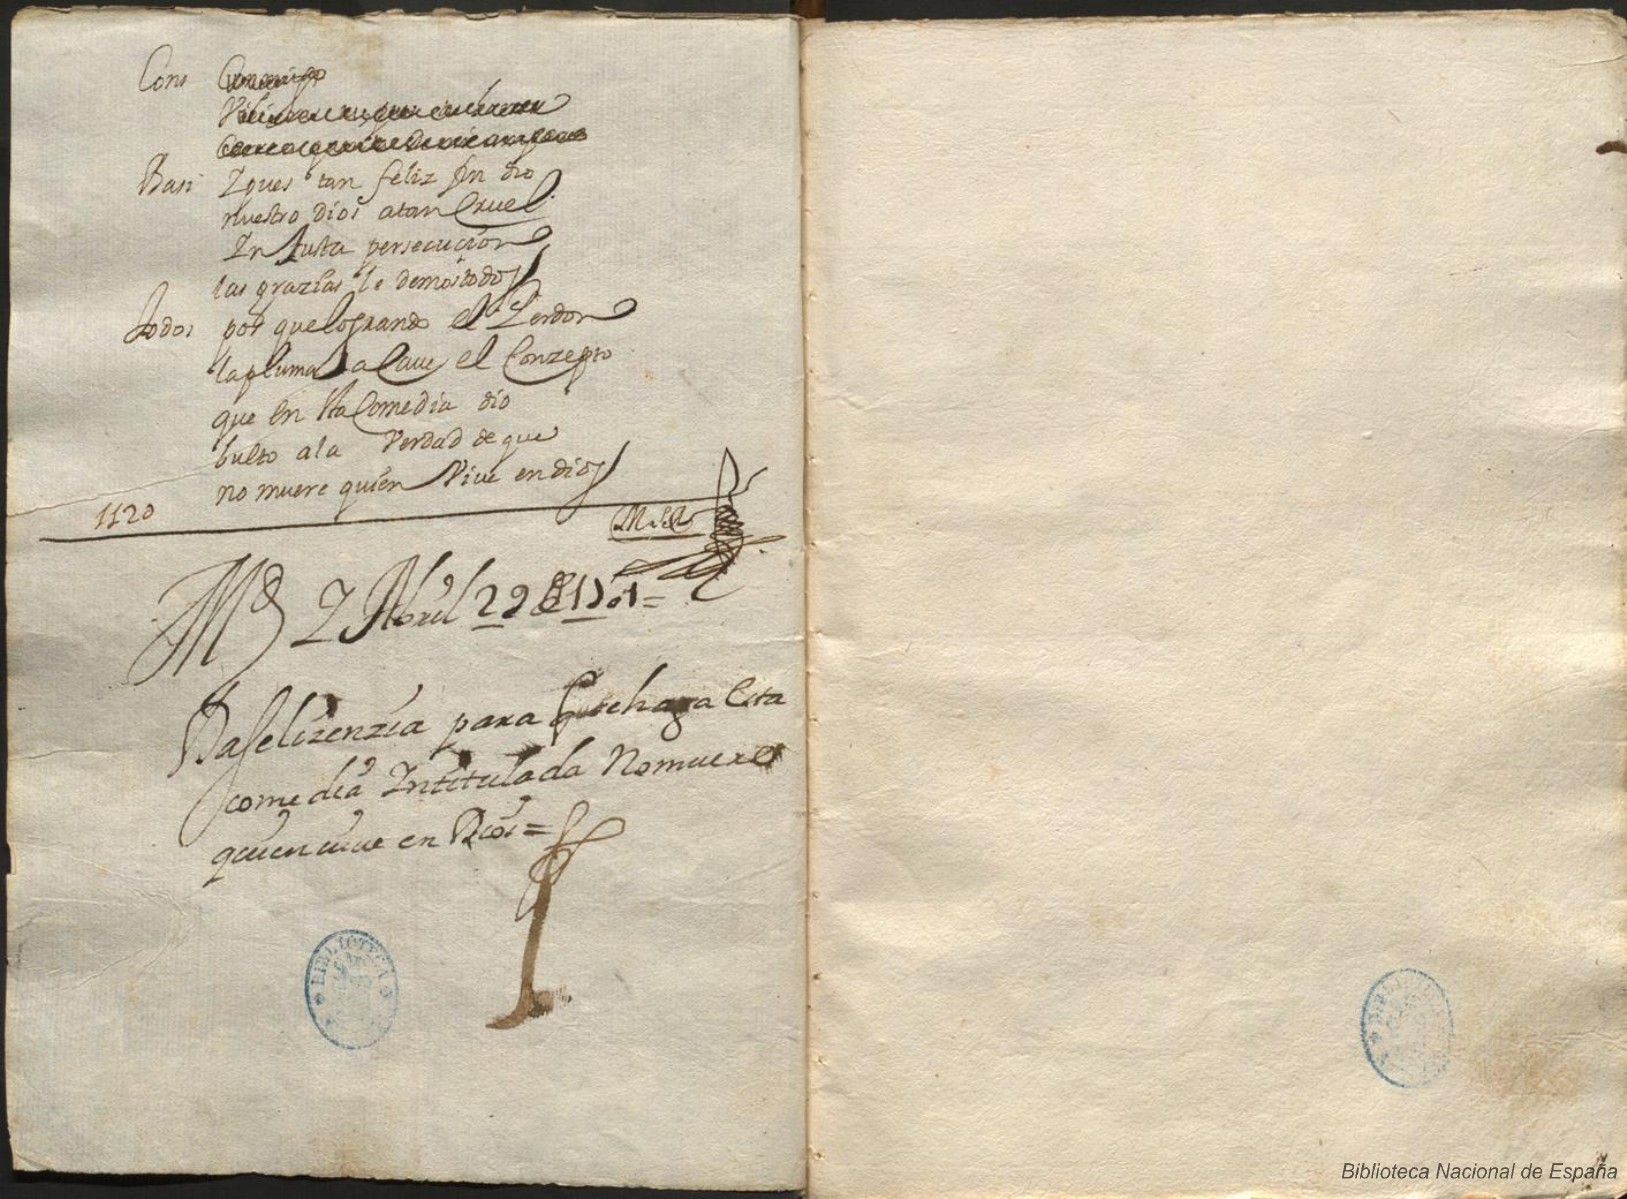 Cons Conmigo
Basi Y pues tan feliz fin dio
nuestro dios a tan Cruel
Injusta persecucion
las grazias le demos todos
Todos por que logrando el Perdon
la pluma alave el Conzepto
que en sta Comedia dio
bulto a la Verdad de que
no muere quien Vive en dios
1120
Md Y Abril 29 de
Dase lizenzia para que se haga Esta
comedia Intitulada No muere
quien viue en Dios =
BIBLIOTECA
Biblioteca Nacional de España